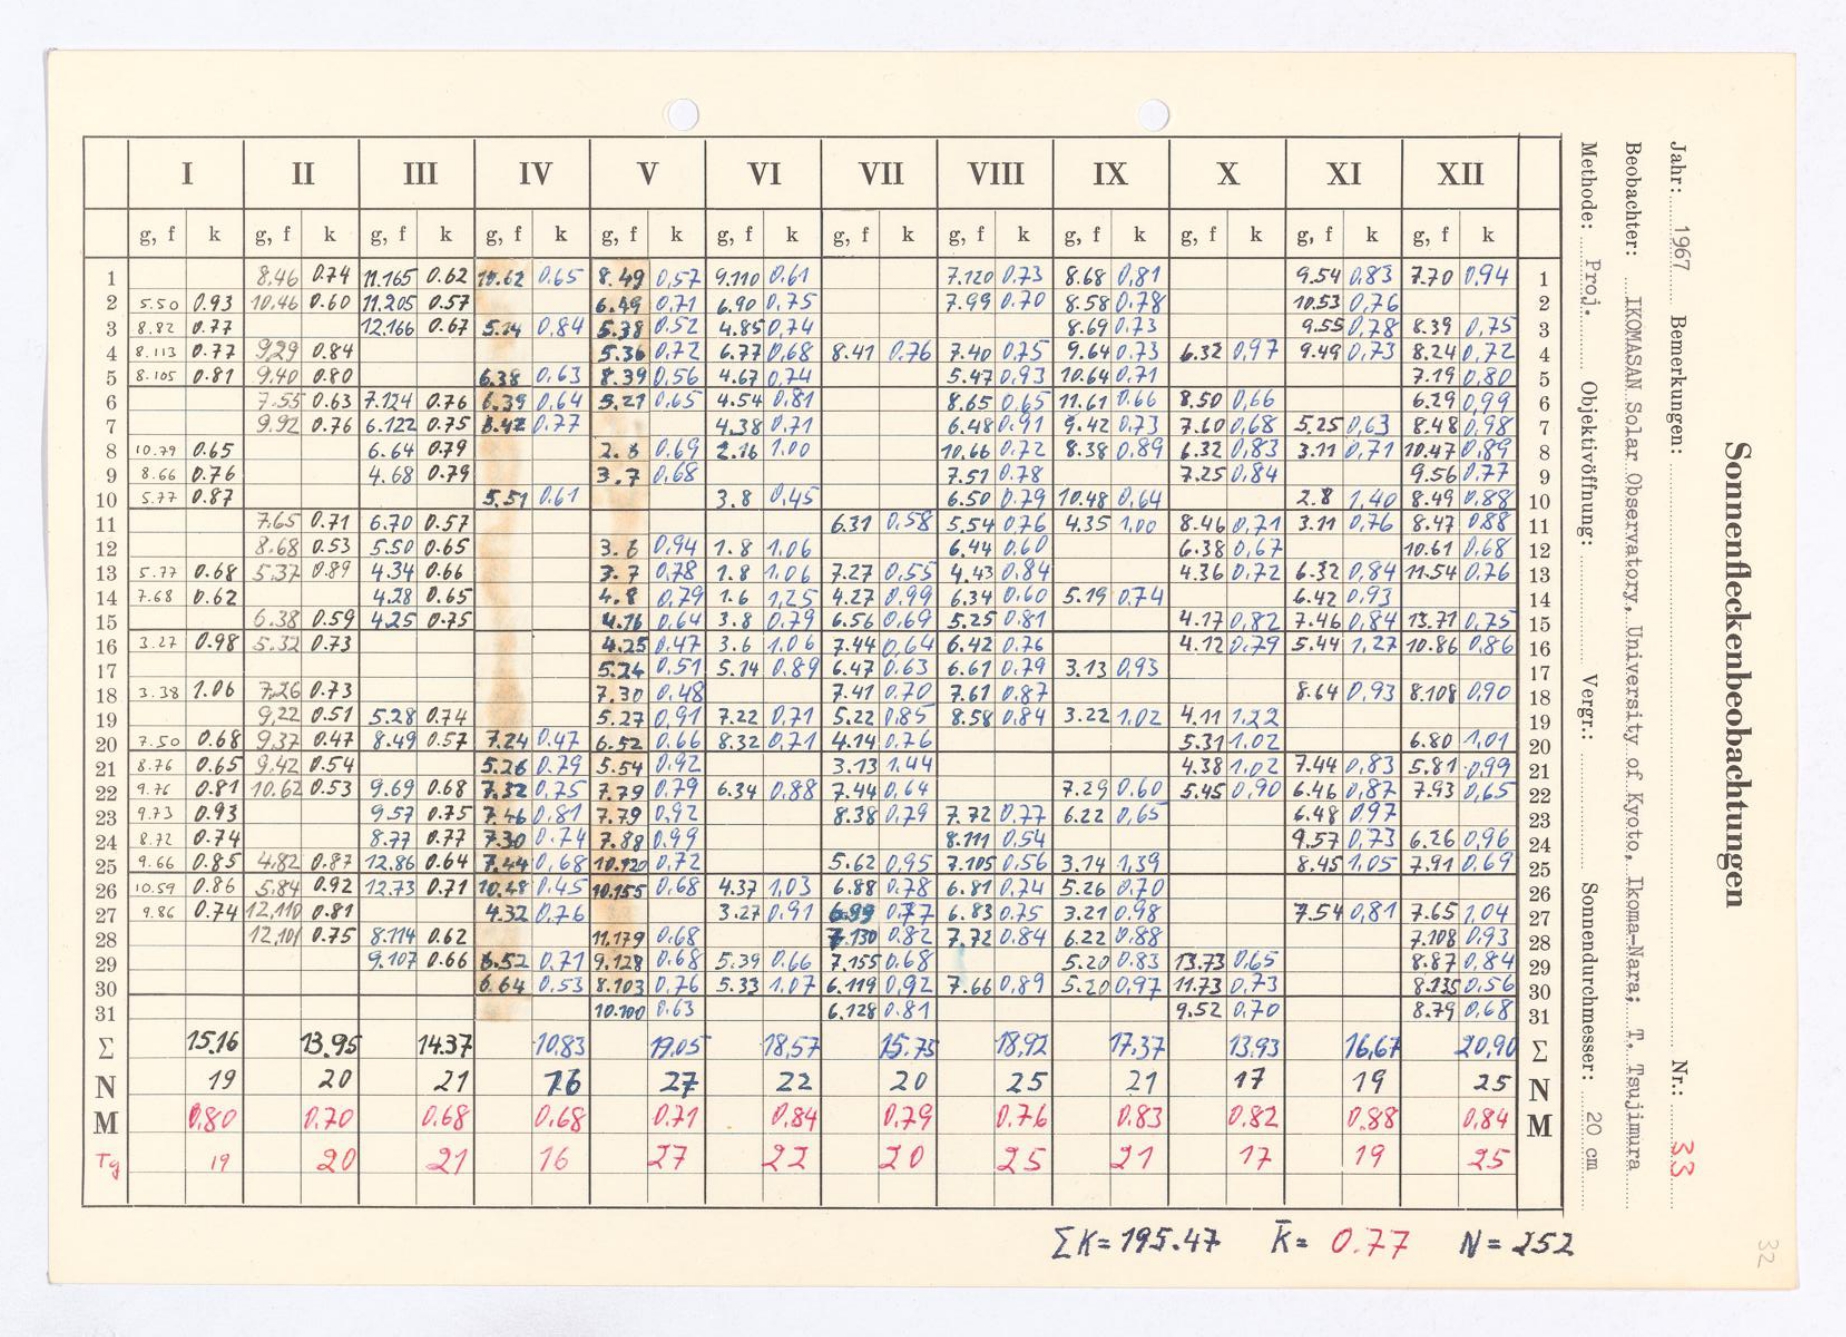 Sonnenfleckenbeobachtungen
Jahr: 1967 Bemerkungen: Nr.: 33
Beobachter: IKOMASAN Solar Observatory, University of Kyoto, Ikoma-Nara; T. Tsujimura
Methode: Proj. Objektivöffnung: Vergr.: Sonnendurchmesser: 20 cm
I II III IV V VI VII VIII IX X XI XII
g, f k g, f k g, f k g, f k g, f k g, f k g, f k g, f k g, f k g, f k g, f k g, f k
1 8.46 0.74 11.165 0.62 0.65 8.49 0,57 9.110 0,61 7.120 0.73 8.68 0,81 9.54 0,83 7.70 0,94 1
2 5.50 0.93 10.46 0.60 11.205 0.57 6.49 0,71 6.90 0,75 7.99 0.70 8.58 0.78 10.53 0,76 2
3 8.82 0.77 12.166 0.67 5.14 0,84 5.38 0.52 4.85 0,74 8.69 0.73 9.55 0,78 8.39 0,75 3
4 8.113 0.77 9.29 0.84 5.36 0,72 6.77 0,68 8.41 0.76 7.40 0,75 9.64 0.73 6.32 0,97 9.49 0,73 8.24 0,72 4
5 8.105 0.81 9.40 0.80 6.38 0,63 8.39 0,56 4.67 0,74 5.47 0,93 10.64 0,71 7.19 0,80 5
6 7.55 0.63 7.124 0.76 6.39 0,64 5.27 0,65 4.54 0,81 8.65 0,65 11.61 0.66 8.50 0,66 6.29 0,99 6
7 9.92 0.76 6.122 0.75 0.77 4.38 0,71 6.48 0.91 9.42 0,73 7.60 0,68 5.25 0,63 8.48 0,98 7
8 10.79 0.65 6.64 0.79 0.69 2.16 1.00 10.66 0.72 8.38 0,89 6.32 0,83 3.11 0,71 10.47 0,89 8
9 8.66 0.76 4.68 0.79 3.7 0,68 7.51 0.78 7.25 0,84 9.56 0.77 9
10 5.77 0.87 5.51 0,61 3.8 0,45 6.50 0.79 10.48 0,64 2.8 1,40 8.49 0,88 10
11 7.65 0.71 6.70 0.57 6.31 0,58 5.54 0,76 4.35 1,00 8.46 0,71 3.11 0,76 8.47 0.88 11
12 8.68 0.53 5.50 0.65 3.6 0,94 1.8 1,06 6.44 0.60 6.38 0,67 10.61 0,68 12
13 5.77 0.68 5.37 0.89 4.34 0.66 3.7 0,78 1.8 1,06 7.27 0,55 4.43 0.84 4.36 0,72 6.32 0,84 11.54 0,76 13
14 7.68 0.62 4.28 0.65 4.8 0,79 1.6 1,25 4.27 0,99 6.34 0,60 5.19 0.74 6.42 0,93 14
15 6.38 0.59 4.25 0.75 4.16 0,64 3.8 0,79 6.56 0,69 5.25 0.81 4.17 0,82 7.46 0,84 13.71 0,75 15
16 3.27 0.98 5.32 0.73 4.25 0.47 3.6 1.06 7.44 0,64 6.42 0.76 4.12 0,79 5.44 1,27 10.86 0,86 16
17 5.24 0.51 5.14 0,89 6.47 0.63 6.61 0.79 3.13 0,93 17
18 3.38 1.06 7.26 0.73 7.30 0,48 7.41 0,70 7.61 0,87 8.64 0,93 8.108 0,90 18
19 9.22 0.51 5.28 0.74 5.27 0,91 7.22 0,71 5.22 0,85 8.58 0,84 3.22 1,02 4.11 1,22 19
20 7.50 0.68 9.37 0.47 8.49 0.57 7.24 0,47 6.52 0.66 8.32 0,71 4.14 0.76 5.31 1.02 6.80 1,01 20
21 8.76 0.65 9.42 0.54 5.26 0.79 5.54 0.92 3.13 1.44 4.38 1,02 7.44 0,83 5.81 0,99 21
22 9.76 0.81 10.62 0.53 9.69 0.68 7.32 0,75 7.79 0,79 6.34 0,88 7.44 0,64 7.29 0.60 5.45 0,90 6.46 0,87 7.93 0,65 22
23 9.73 0.93 9.57 0.75 7.46 0,81 7.79 0,92 8.38 0,79 7.72 0,77 6.22 0,65 6.48 0,97 23
24 8.72 0.74 8.77 0.77 7.30 0.74 7.88 0.99 8.111 0,54 9.57 0,73 6.26 0,96 24
25 9.66 0.85 4.82 0.87 12.86 0.64 7.44 0,68 10.120 0,72 5.62 0,95 7.105 0,56 3.14 1,39 8.45 1,05 7.91 0,69 25
26 10.59 0.86 5.84 0.92 12.73 0.71 10.48 0,45 10.155 0,68 4.37 1,03 6.88 0,78 6.81 0,74 5.26 0.70 26
27 9.86 0.74 12.110 0.81 4.32 0,76 3.27 0,91 6.99 0,77 6.83 0,75 3.21 0,98 7.54 0,81 7.65 1,04 27
28 12.101 0.75 8.114 0.62 11.179 0,68 7.130 0.82 7.72 0,84 6.22 0,88 7.108 0,93 28
29 9.107 0.66 6.52 0,71 9.128 0,68 5.39 0.66 7.155 0.68 5.20 0.83 13.73 0,65 8.87 0,84 29
30 6.64 0.53 8.103 0,76 5.33 1,07 6.119 0,92 7.66 0,89 5.20 0,97 11.73 0,73 8.135 0,56 30
31 10.100 0.63 6.128 0.81 9.52 0,70 8.79 0,68 31
Σ 15.16 13.95 14.37 10,83 19,05 18,57 15.75 18,92 17.37 13,93 16,67 20,90 Σ
N 19 20 21 16 27 22 20 25 21 17 19 25 N
M 0.80 0.70 0.68 0.68 0.71 0.84 0.79 0.76 0.83 0.82 0.88 0.84 M
Tg 19 20 21 16 27 22 20 25 21 17 19 25
ΣK = 195.47 K̄ = 0.77 N = 252
32